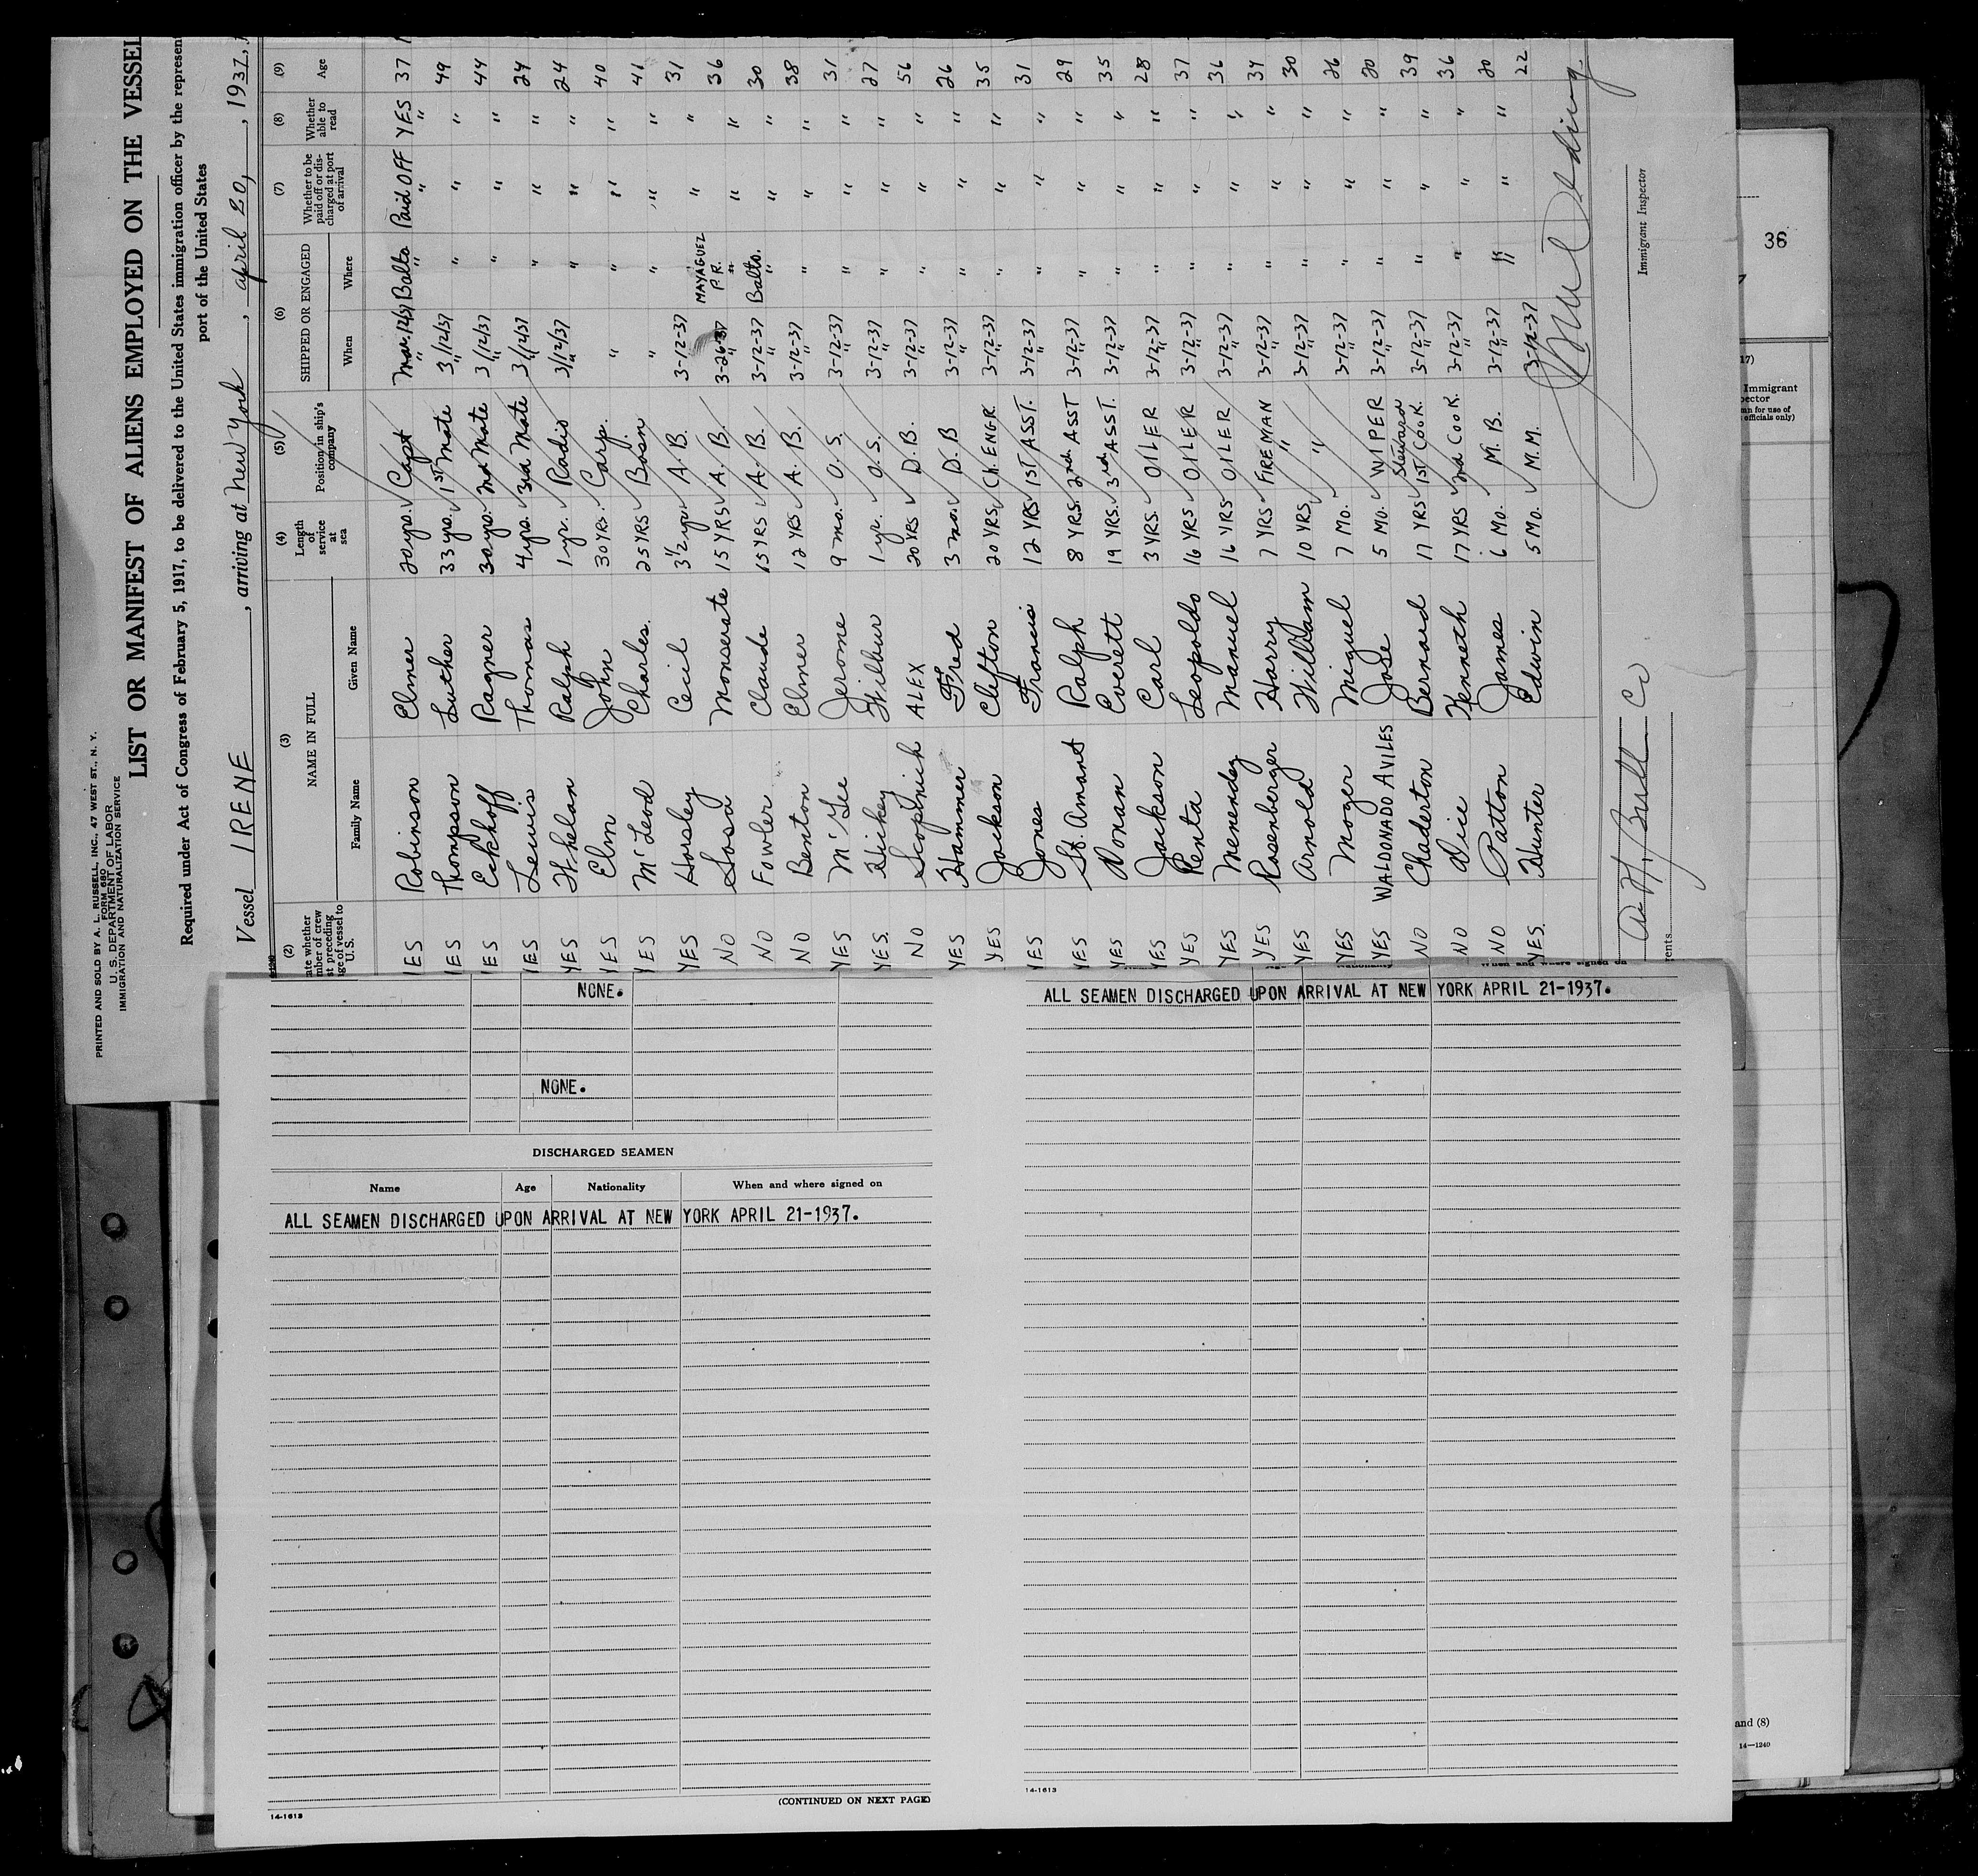 PRINTED AND SOLD BY A. L. RUSSELL, INC., 47 WEST ST., N. Y.
FORM 680
U. S. DEPARTMENT OF LABOR
IMMIGRATION AND NATURALIZATION SERVICE
LIST OR MANIFEST OF ALIENS EMPLOYED ON THE VESSEL
Required under Act of Congress of February 5, 1917, to be delivered to the United States immigration officer by the represen
port of the United States
Vessel IRENE , arriving at New York , April 20, , 1937,
(2) (3) (4) (5) (6) (7) (8) (9)
ate whether mber of crew st preceding ge of vessel to U. S.
NAME IN FULL
Family Name Given Name
Length of service at sea
Position in ship's company
SHIPPED OR ENGAGED
When Where
Whether to be paid off or discharged at port of arrival
Whether able to read
Age
YES Robinson Elmer 20 yrs. Capt Mar. 12/37 Balto Paid OFF YES 37
YES Thompson Luther 33 yrs. 1st Mate 3/12/37 " " " 49
YES Eckhoff Ragner 30 yrs. 2nd Mate 3/12/37 " " " 44
YES Lewis Thomas 4 yrs. 3rd Mate 3/12/37 " " " 24
YES Whelan Ralph 1 yr. Radio 3/12/37 " " " 24
YES Elm John 30 YRS. Carp. " " " " 40
YES McLeod Charles. 25 YRS Bosn " " " " 41
YES Horsley Cecil 3 1/2 yrs A. B. 3-12-37 " " 31
NO Sosa Monserate 15 YRS A. B. 3-26-37 MAYAGUEZ P.R. " " 36
NO Fowler Claude 15 YRS A. B. 3-12-37 Balto. " " 30
NO Benton Elmer 12 YRS A. B. 3-12-37 " " " 38
YES McGee Jerome 9 mo. O. S. 3-12-37 " " " 31
YES. Hickey Wilbur 1 yr. O. S. 3-12-37 " " " 27
NO Scopinich ALEX 20 YRS D. B. 3-12-37 " " " 56
YES Hammer Fred 3 mo. D. B 3-12-37 " " " 26
YES Jackson Clifton 20 YRS. Ch. ENGR. 3-12-37 " " " 35
YES Jones Francis 12 YRS 1ST ASST. 3-12-37 " " " 31
YES St. Amant Ralph 8 YRS. 2nd. ASST 3-12-37 " " " 29
YES Donan Everett 19 YRS. 3rd. ASST. 3-12-37 " " " 35
YES Jackson Carl 3 YRS. OILER 3-12-37 " " " 28
YES Penta Leopoldo 16 YRS OILER 3-12-37 " " " 37
YES Menendez Manuel 16 YRS OILER 3-12-37 " " " 36
YES Rosenberger Harry 7 YRS FIREMAN 3-12-37 " " " 34
YES Arnold William 10 YRS " 3-12-37 " " " 30
YES Moger Miguel 7 MO. " 3-12-37 " " " 26
YES WALDONADO AVILES Jose 5 MO. WIPER 3-12-37 " " " 20
NO Chaderton Bernard 17 YRS Steward 1ST COOK. 3-12-37 " " " 39
NO Dice Kenneth 17 YRS 2nd COOK. 3-12-37 " " " 36
NO Patton James 6 MO. M. B. 3-12-37 " " " 20
YES. Hunter Edwin 5 MO. M.M. 3-12-37 " 22
A. H. Bull Co
Immigrant Inspector
rents.
36
17)
Immigrant
ector
mn for use of
officials only)
and (8)
14—1240
NONE.
NONE.
DISCHARGED SEAMEN
Name Age Nationality When and where signed on
ALL SEAMEN DISCHARGED UPON ARRIVAL AT NEW YORK APRIL 21-1937.
(CONTINUED ON NEXT PAGE)
14-1613
ALL SEAMEN DISCHARGED UPON ARRIVAL AT NEW YORK APRIL 21-1937.
14-1613